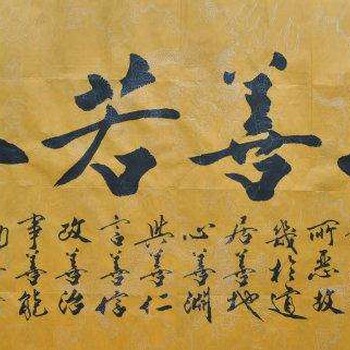 善若
所惡故
幾於道
居善地
心善淵
與善仁
言善信
政善治
事善能